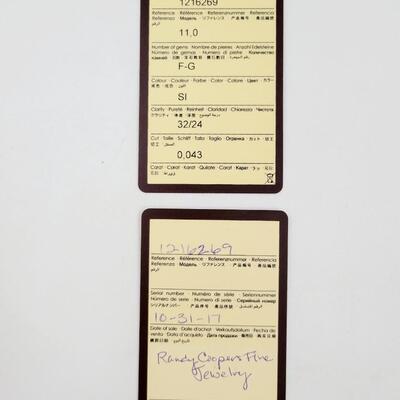 1216269
Reference · Référence · Referenznummer · Referencia
Referenza · Модель · リファレンス · 产品编号 · 產品編號
الرقم
11,0
Number of gems · Nombre de pierres · Anzahl Edelsteine
Número de gemas · Numero di pietre · Количество
F-G
Colour · Couleur · Farbe · Color · Colore · Цвет · カラー
اللون
SI
Clarity · Pureté · Reinheit · Claridad · Chiarezza · Чистота
32/24
Cut · Taille · Schliff · Talla · Taglio · Огранка · カット · 切工
0,043
Carat · Carat · Karat · Quilate · Carat · Карат
1216269
Reference · Référence · Referenznummer · Referencia
Referenza · Модель · リファレンス · 产品编号 · 產品編號
الرقم
Serial number · Numéro de série · Seriennummer
Número de serie · Numero di serie · Серийный номер
シリアルナンバー · 产品序号 · 產品序號
10-31-17
Date of sale · Date d'achat · Verkaufsdatum · Fecha de
venta · Data d'acquisto · Дата продажи
Randy Coopers Fine
Jewelry